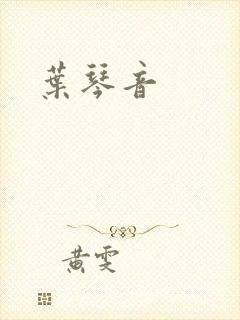 葉琴音
黄雯